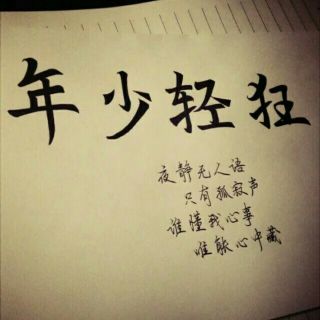 年少轻狂
夜静无人语
只有孤寂声
谁懂我心事
唯能心中藏